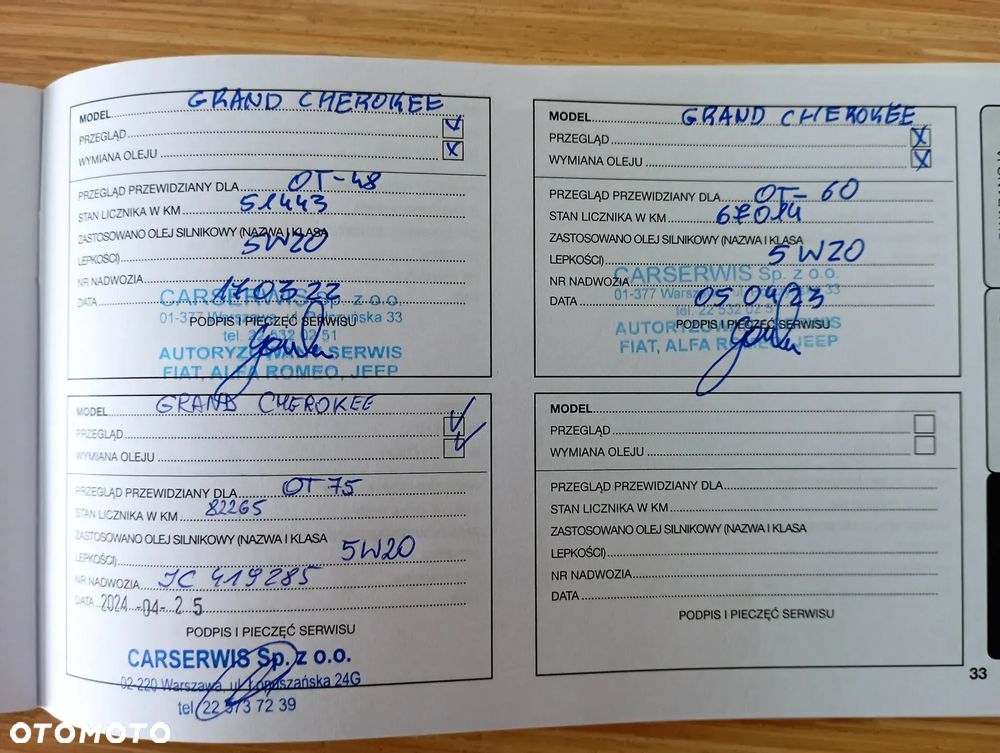 MODEL GRAND CHEROKEE
PRZEGLĄD
WYMIANA OLEJU
PRZEGLĄD PRZEWIDZIANY DLA OT-48
STAN LICZNIKA W KM 51443
ZASTOSOWANO OLEJ SILNIKOWY (NAZWA I KLASA
LEPKOŚCI) 5W20
NR NADWOZIA
DATA 17.03.22
CARSERWIS Sp. z o.o.
01-377 Warszawa, ul. Połczyńska 33
PODPIS I PIECZĘĆ SERWISU
tel. 22 532 02 51
AUTORYZOWANY SERWIS
FIAT, ALFA ROMEO, JEEP
MODEL GRAND CHEROKEE
PRZEGLĄD X
WYMIANA OLEJU X
PRZEGLĄD PRZEWIDZIANY DLA OT-60
STAN LICZNIKA W KM 67014
ZASTOSOWANO OLEJ SILNIKOWY (NAZWA I KLASA
LEPKOŚCI) 5W20
NR NADWOZIA
CARSERWIS Sp. z o.o.
01-377 Warszawa 33
DATA 05 04/23
tel. 22 532
PODPIS I PIECZĘĆ SERWISU
AUTORYZOWANY SERWIS
FIAT, ALFA ROMEO, JEEP
MODEL GRAND CHEROKEE
PRZEGLĄD
WYMIANA OLEJU
PRZEGLĄD PRZEWIDZIANY DLA OT 75
STAN LICZNIKA W KM 82265
ZASTOSOWANO OLEJ SILNIKOWY (NAZWA I KLASA
LEPKOŚCI) 5W20
NR NADWOZIA JC 419285
DATA 2024-04-25
PODPIS I PIECZĘĆ SERWISU
CARSERWIS Sp. z o.o.
02-220 Warszawa, ul. Łopuszańska 24G
tel. 22 573 72 39
MODEL
PRZEGLĄD
WYMIANA OLEJU
PRZEGLĄD PRZEWIDZIANY DLA
STAN LICZNIKA W KM
ZASTOSOWANO OLEJ SILNIKOWY (NAZWA I KLASA
LEPKOŚCI)
NR NADWOZIA
DATA
PODPIS I PIECZĘĆ SERWISU
33
OTOMOTO